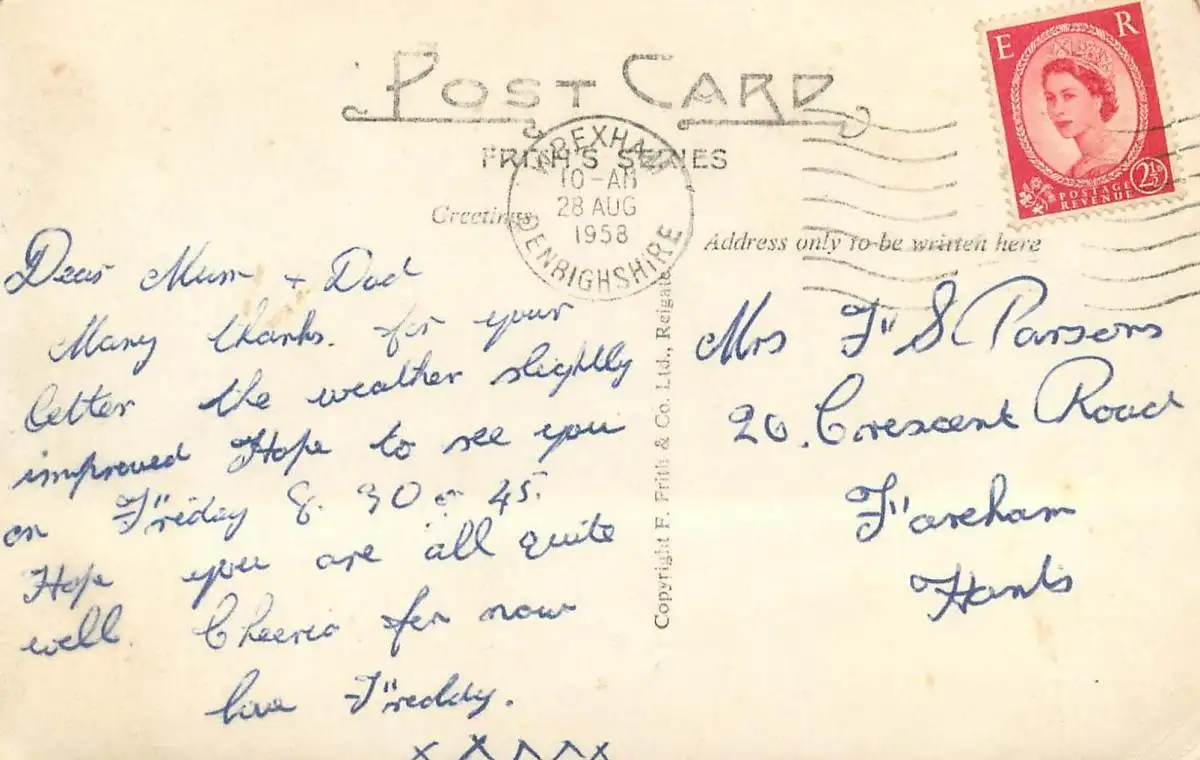 POST CARD
FRITH'S SERIES
WREXHAM
10-AM
28 AUG
1958
DENBIGHSHIRE
E R
POSTAGE
REVENUE
2½D
Greetings
Address only to be written here
Dear Mum + Dad
Many thanks. for your
letter the weather slightly
improved Hope to see you
on Friday 8. 30 or 45.
Hope you are all quite
well. Cheerio for now
love Freddy.
x x x x x
Copyright F. Frith & Co. Ltd., Reigate
Mrs F S Parsons
20. Crescent Road
Fareham
Hants